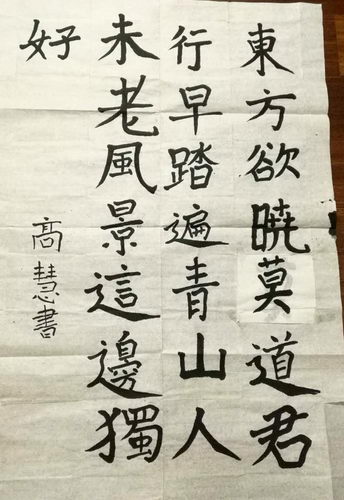 東方欲曉莫道君
行早踏遍青山人
未老風景這邊獨
好
高慧書